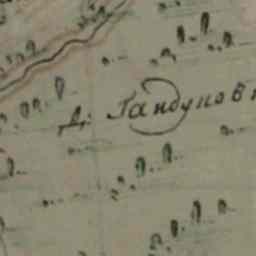 Д: Гандуновк